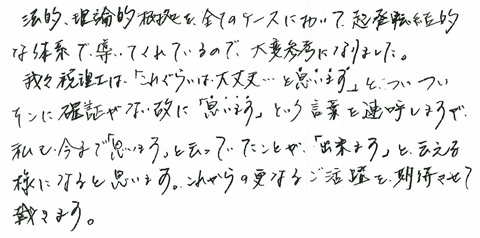 法的、理論的根拠を、全てのケースにおいて、起承転結的
な体系で、導いてくれているので、大変参考になりました。
我々税理士は、「これぐらいは大丈夫…と思います」と、ついつい
そこに確証がない故に「思います」という言葉を連呼しますが、
私も、今まで「思います」と云っていたことが、「出来ます」と、云える
様になると思います。これからの更なるご活躍を、期待させて
戴きます。